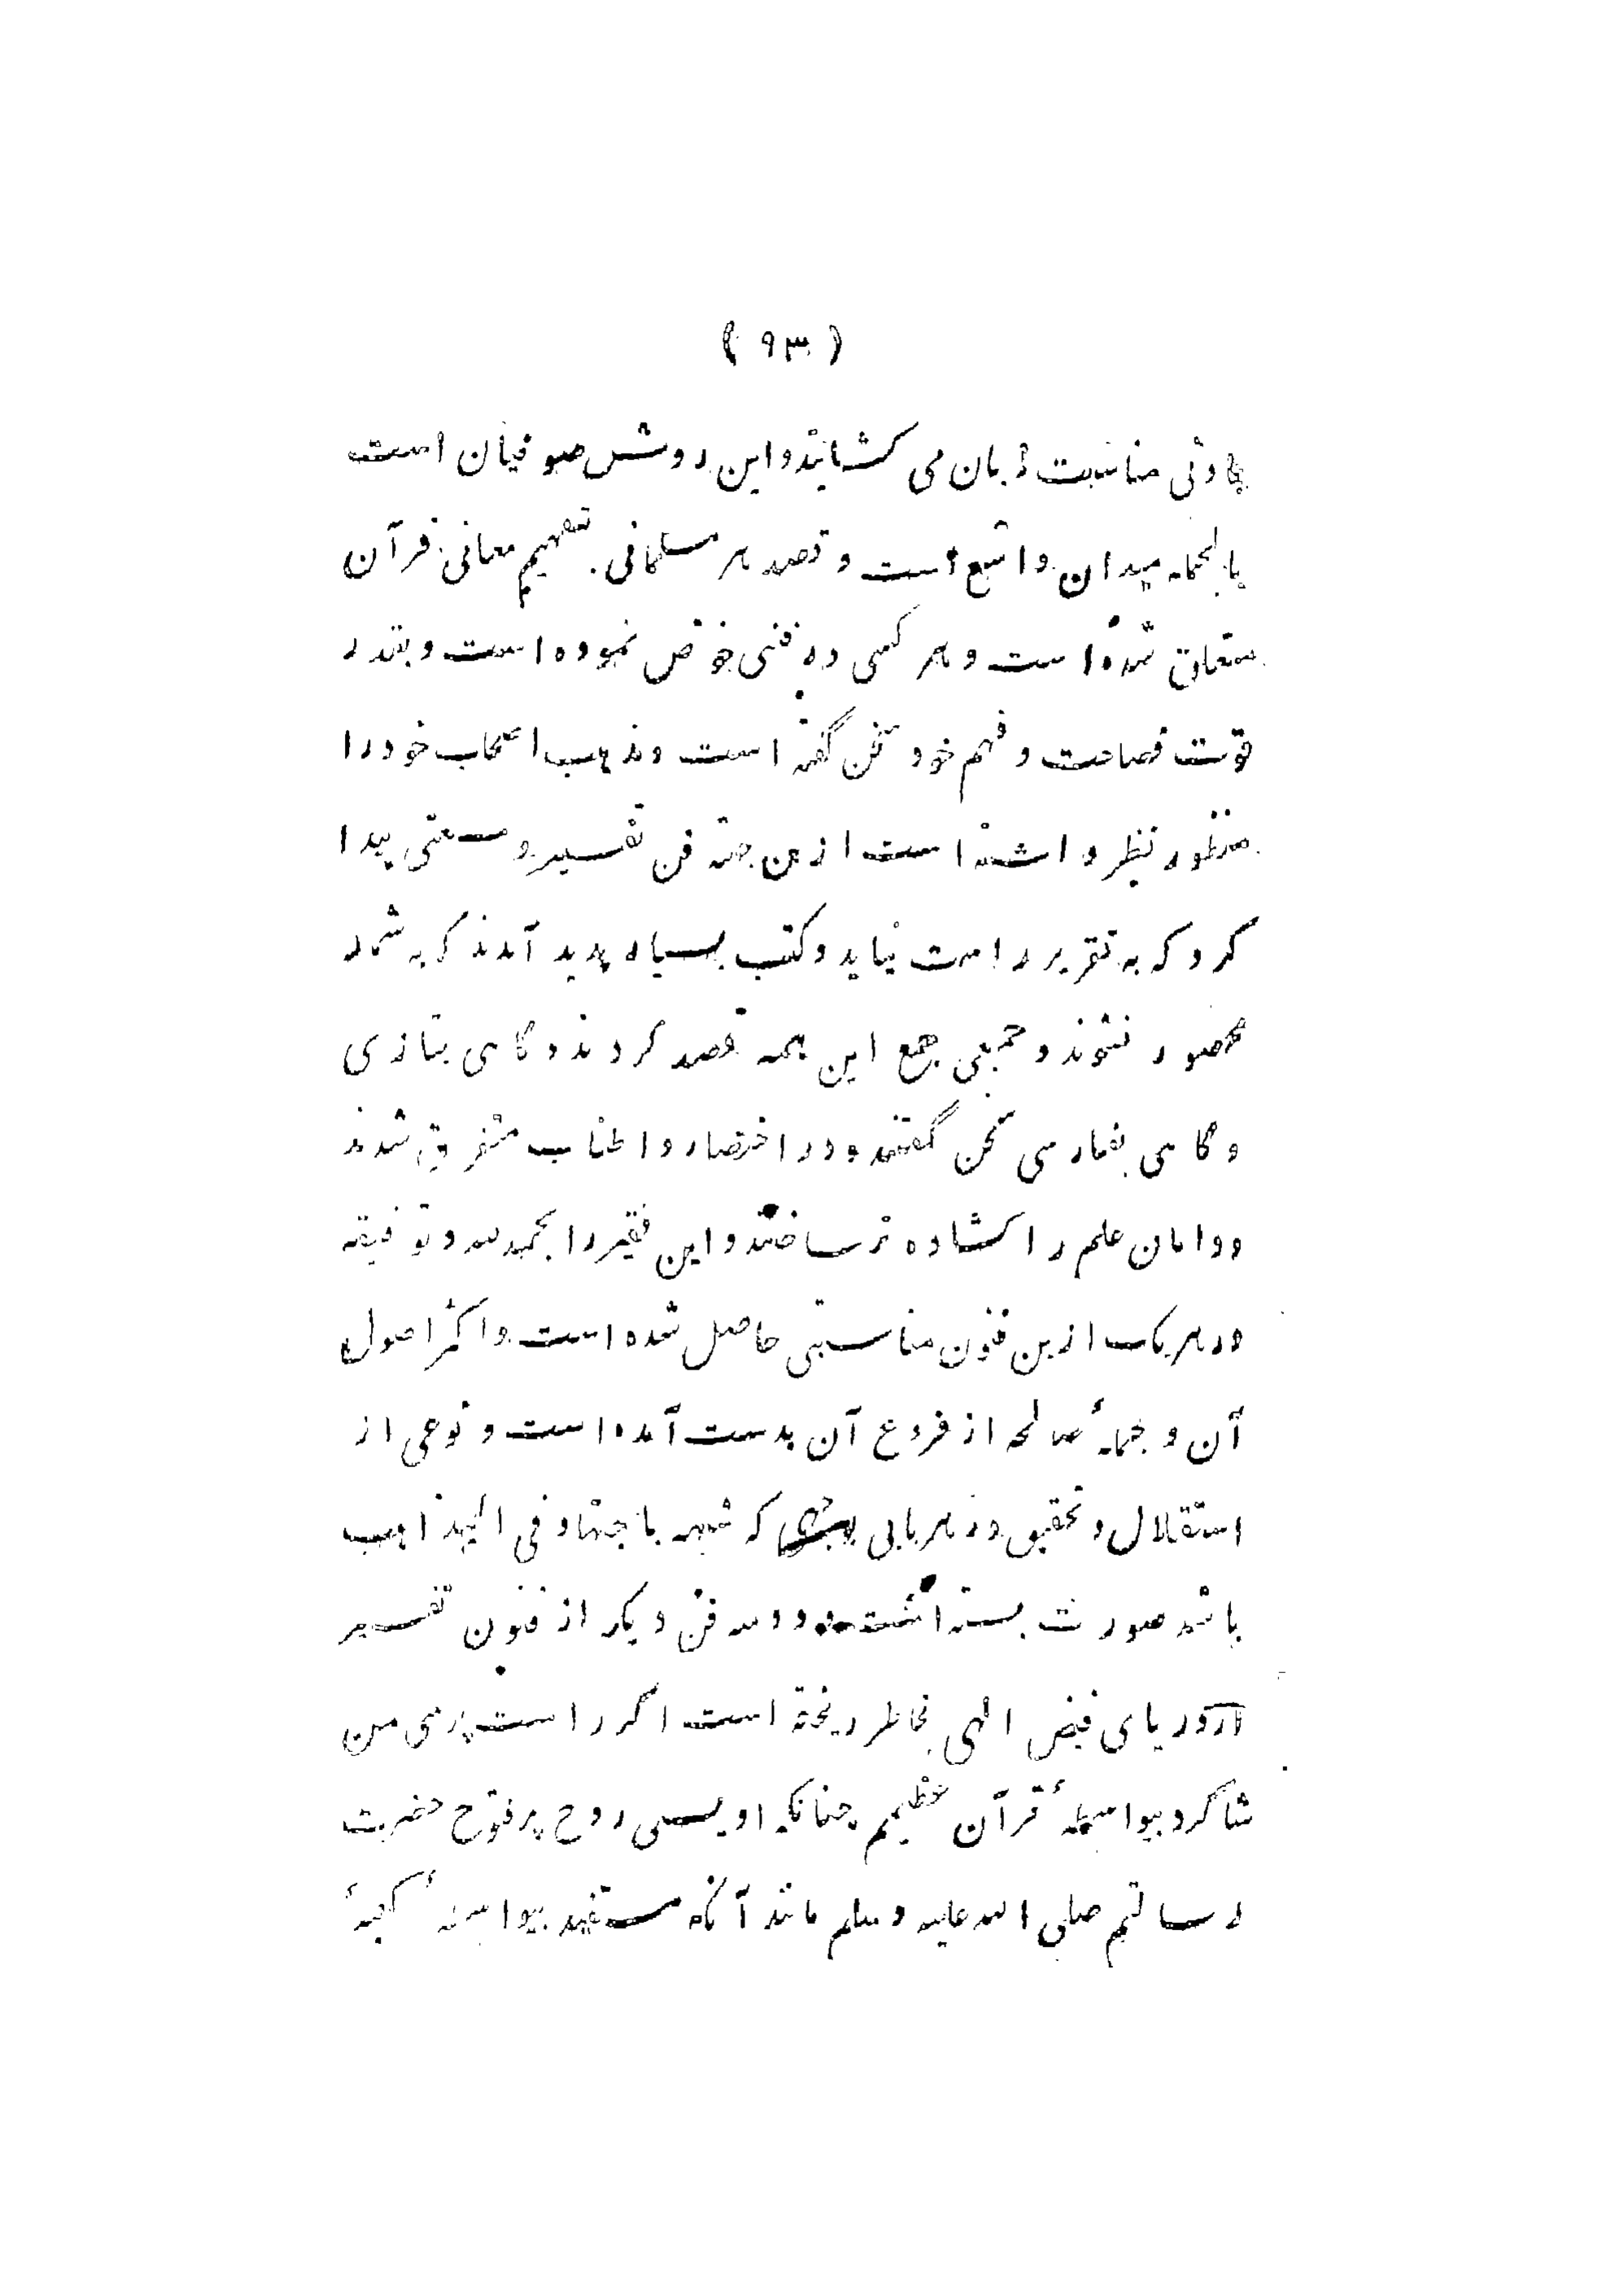 ( ۹۳ )
بادنی مناسبت زبان می کشایند و این روش صوفیان است
بالجمله میدان واسع است و قصد هر مسلمانی تفهیم معانی قرآن
متعلق شده است و هر کسی در فنی خوض نموده است و بقدر
قوت فصاحت و فهم خود سخن گفته است و مذهب اصحاب خود را
منظور نظر داشته است ازین جهته فن تفسیر وسعتی پیدا
کرد که به تقریر راست نیاید و کتب بسیار پدید آمدند که به شمار
محصور نشوند و جمعی جمع این همه قصد کردند و گاهی بتازی
و گاهی بفارسی سخن گفتند و در اختصار و اطناب متفرق شدند
و دامان علم را کشاده تر ساختند و این فقیر را بحمد الله و توفیقه
در هر یک ازین فنون مناسبتی حاصل شده است و اکثر اصول
آن و جملهٔ صالحه از فروع آن بدست آمده است و نوعی از
استقلال و تحقیق در هر بابی بوجهی که شبهه باجتهاد فی المذاهب
باشد صورت بسته است و دو سه فن دیگر از فنون تفسیر
از دریای فیض الهی بخاطر ریخته است اگر راست پرسی من
شاگرد بیواسطهٔ قرآن عظیمم چنانکه اویسی روح پرفتوح حضرت
رسالتم صلی الله علیه و سلم مانند آنکه مستفید بیواسطهٔ کعبهٔ